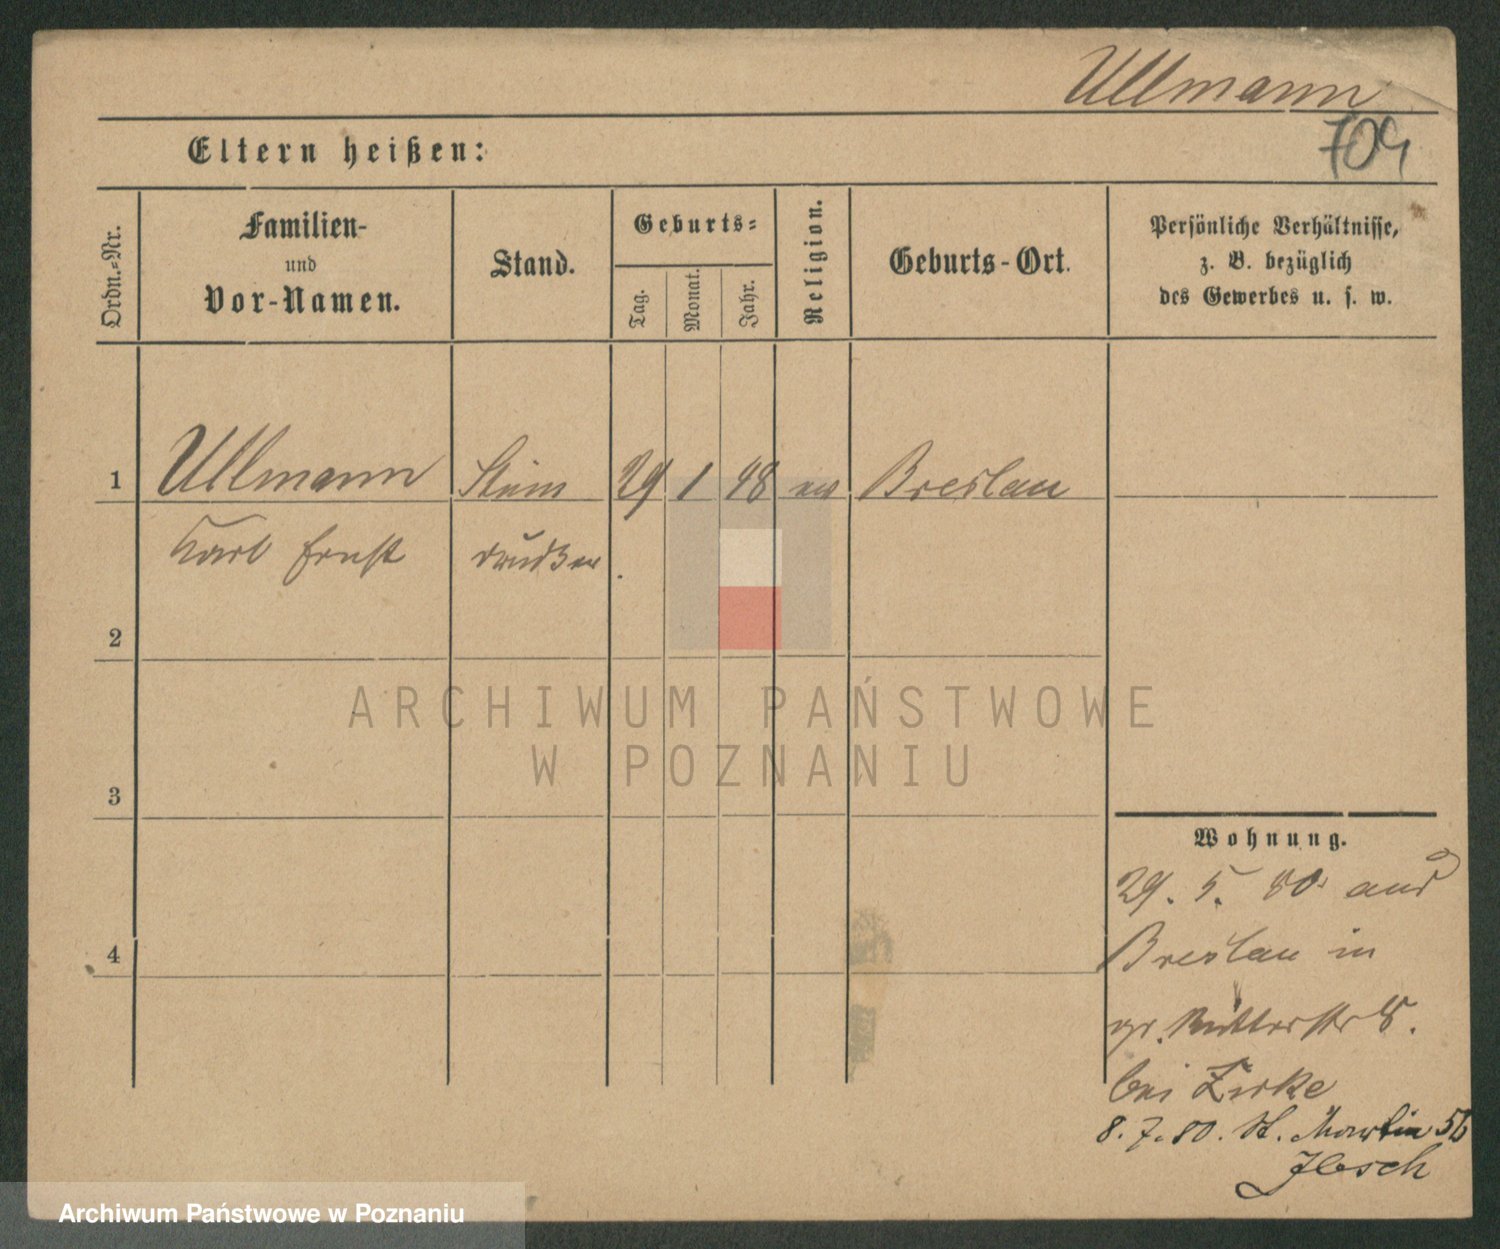 Ullmann
709
Eltern heißen:
Ordn.-Nr.
Familien-
und
Vor-Namen.
Stand.
Geburts-
Tag.
Monat.
Jahr.
Religion.
Geburts-Ort.
Persönliche Verhältnisse,
z. B. bezüglich
des Gewerbes u. s. w.
1 Ullmann Stein 29 1 48 ev Breslau
Karl Ernst drucker
2
ARCHIWUM PAŃSTWOWE
W POZNANIU
3
Wohnung.
29. 5. 80. aus
4
Breslau in
gr. Ritterstr 8.
bei Zirke
8. 7. 80. St. Martin 56
Archiwum Państwowe w Poznaniu